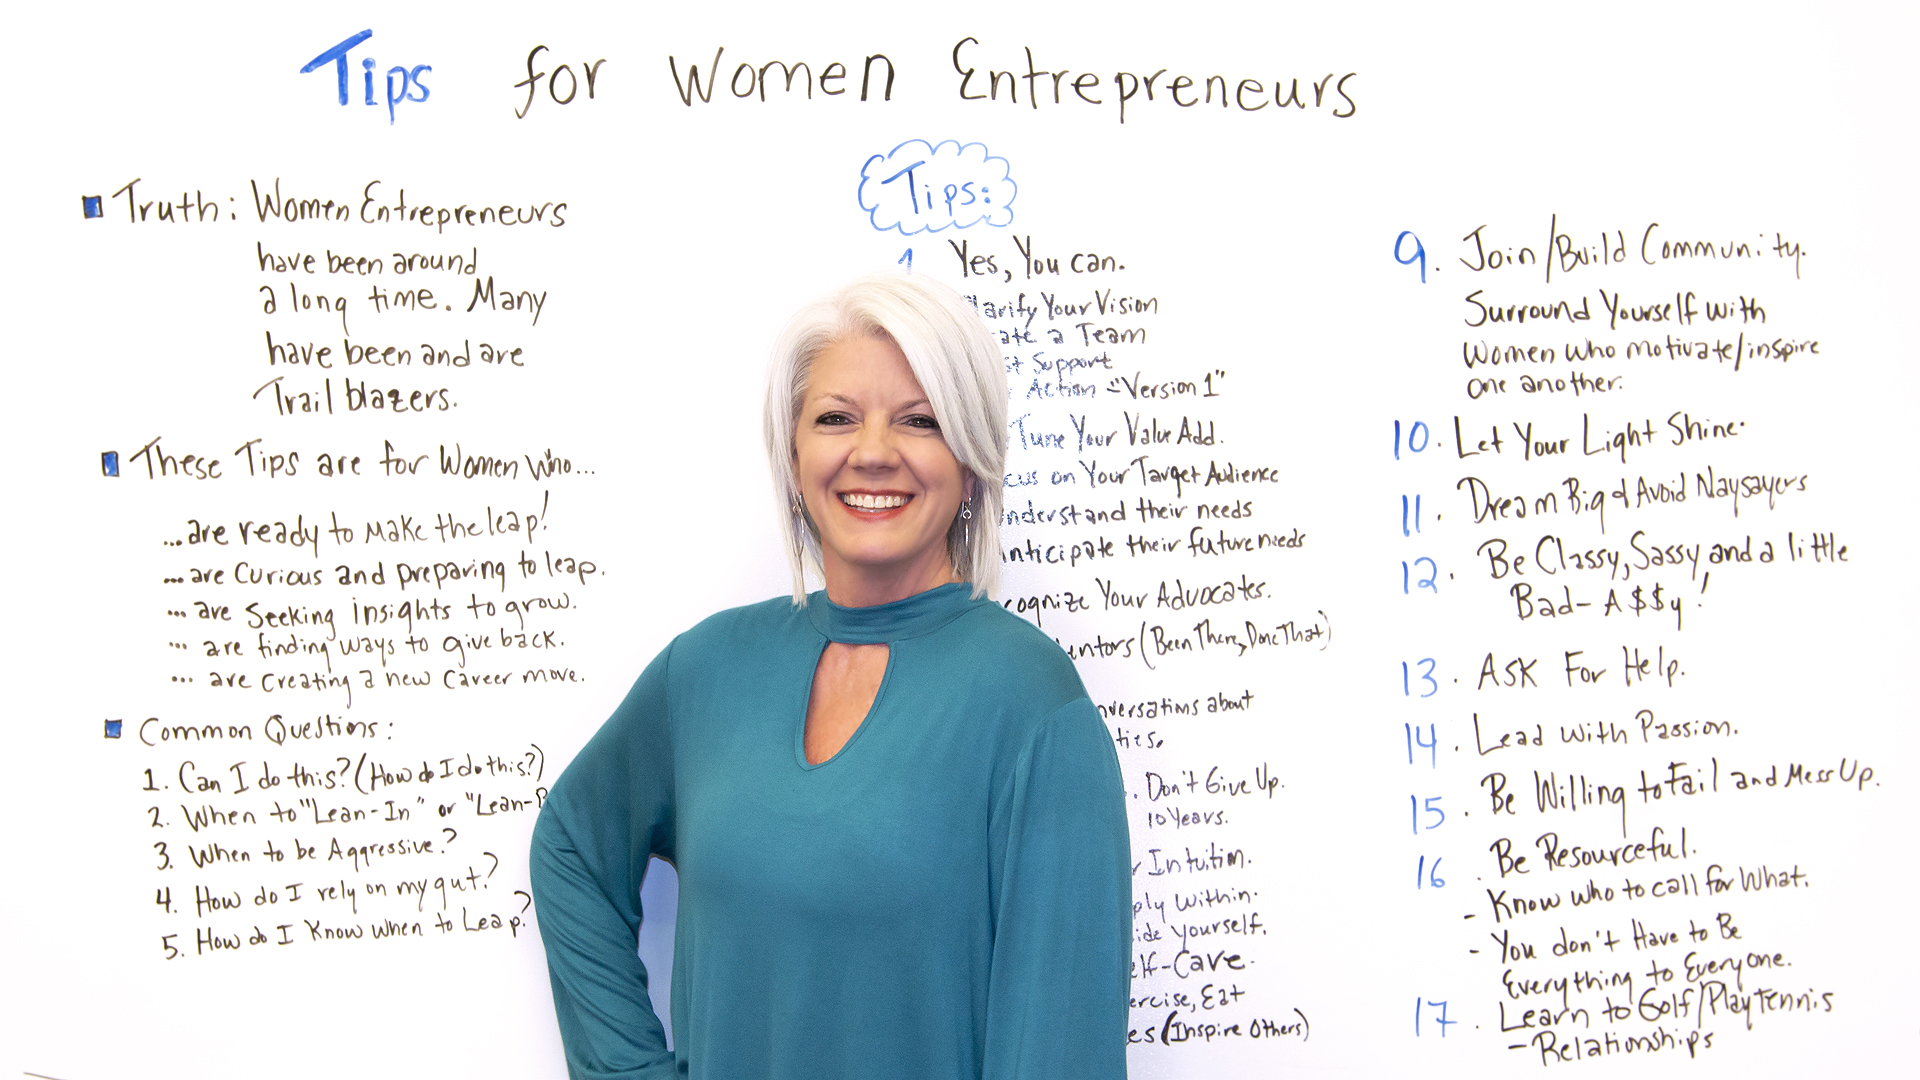 Tips for Women Entrepreneurs
Truth: Women Entrepreneurs
have been around
a long time. Many
have been and are
Trail blazers.
These Tips are for Women Who...
...are ready to Make the leap!
...are Curious and preparing to leap.
... are Seeking insights to grow.
... are finding ways to give back.
... are creating a new career move.
Common Questions:
1. Can I do this? (How do I do this?)
2. When to "Lean-In" or "Lean-
3. When to be Aggressive?
4. How do I rely on my gut?
5. How do I Know when to Leap?
Tips:
1 Yes, You can.
larify Your Vision
ate a Team
st Support
Action - "Version 1"
Tune Your Value Add.
cus on Your Target Audience
nderstand their needs
nticipate their future needs
cognize Your Advocates.
entors (Been There, Done That)
nversations about
ties.
. Don't Give Up.
10 Years.
r Intuition.
ply Within.
ide Yourself.
elf-Care.
ercise, Eat
es (Inspire Others)
9. Join/Build Community.
Surround Yourself with
Women who motivate/inspire
one another.
10. Let Your Light Shine.
11. Dream Big & Avoid Naysayers
12. Be Classy, Sassy and a little
Bad-A$$y!
13. Ask For Help.
14. Lead with Passion.
15. Be Willing to Fail and Mess Up.
16. Be Resourceful.
- Know who to call for What.
- You don't Have to Be
Everything to Everyone.
17. Learn to Golf/Play Tennis
- Relationships